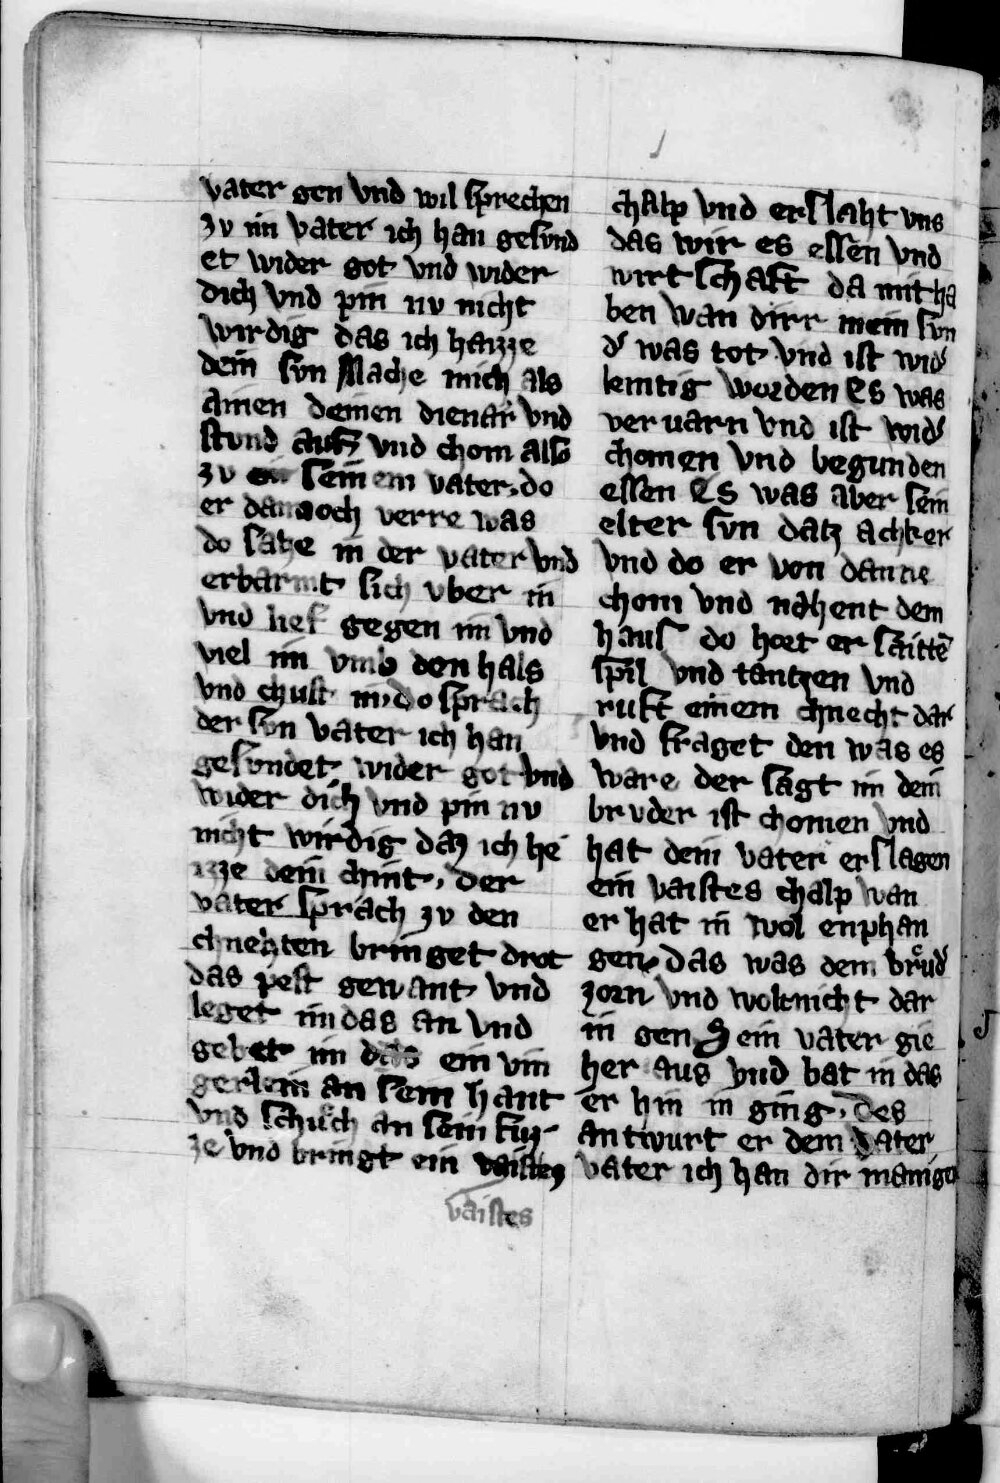 vater gen vnd wil sprechen
zv im vater ich han gesvnd
et wider got vnd wider
dich vnd pin nv nicht
wirdig das ich haizze
dein svn Mache mich als
ainen deinen dienar vnd
stvnd auf vnd chom also
zv seinem vater do
er dannoch verre was
do sahe in der vater vnd
erbarmt sich vber in
vnd lief gegen im vnd
viel im vmb den hals
vnd chust in do sprach
der svn vater ich han
gesvndet wider got vnd
wider dich vnd pin nv
nicht wirdig daz ich hei
izze dein chint, der
vater sprach zv den
chnehten bringet drot
das pest gewant vnd
leget im das an vnd
gebet im das ein vin
gerlein an sein hant
vnd schuch an sein fuz
ze vnd bringt ein vaistez
vaistes
chalp vnd erslaht vns
das wir es essen vnd
wirtschaft da mit ha
ben wan dirr mein svn
d' was tot vnd ist wid'
lemtig worden Es was
ver uarn vnd ist wid'
chomen vnd begunden
essen Es was aber sein
elter svn datz acher
vnd do er von danne
chom vnd nahent dem
haus do hort er saitte
spil vnd tantzen vnd
ruft einem chnecht dar
vnd fraget den was es
ware der sagt im dein
brvder ist chomen vnd
hat dein vater erslagen
ein vaistes chalp wan
er hat in wol enphan
gen das was dem brud'
zorn vnd wolt nicht dar
in gen Sein vater gie
her aus vnd bat in das
er hin in ging, des
antwurt er dem vater
vater ich han dir manige